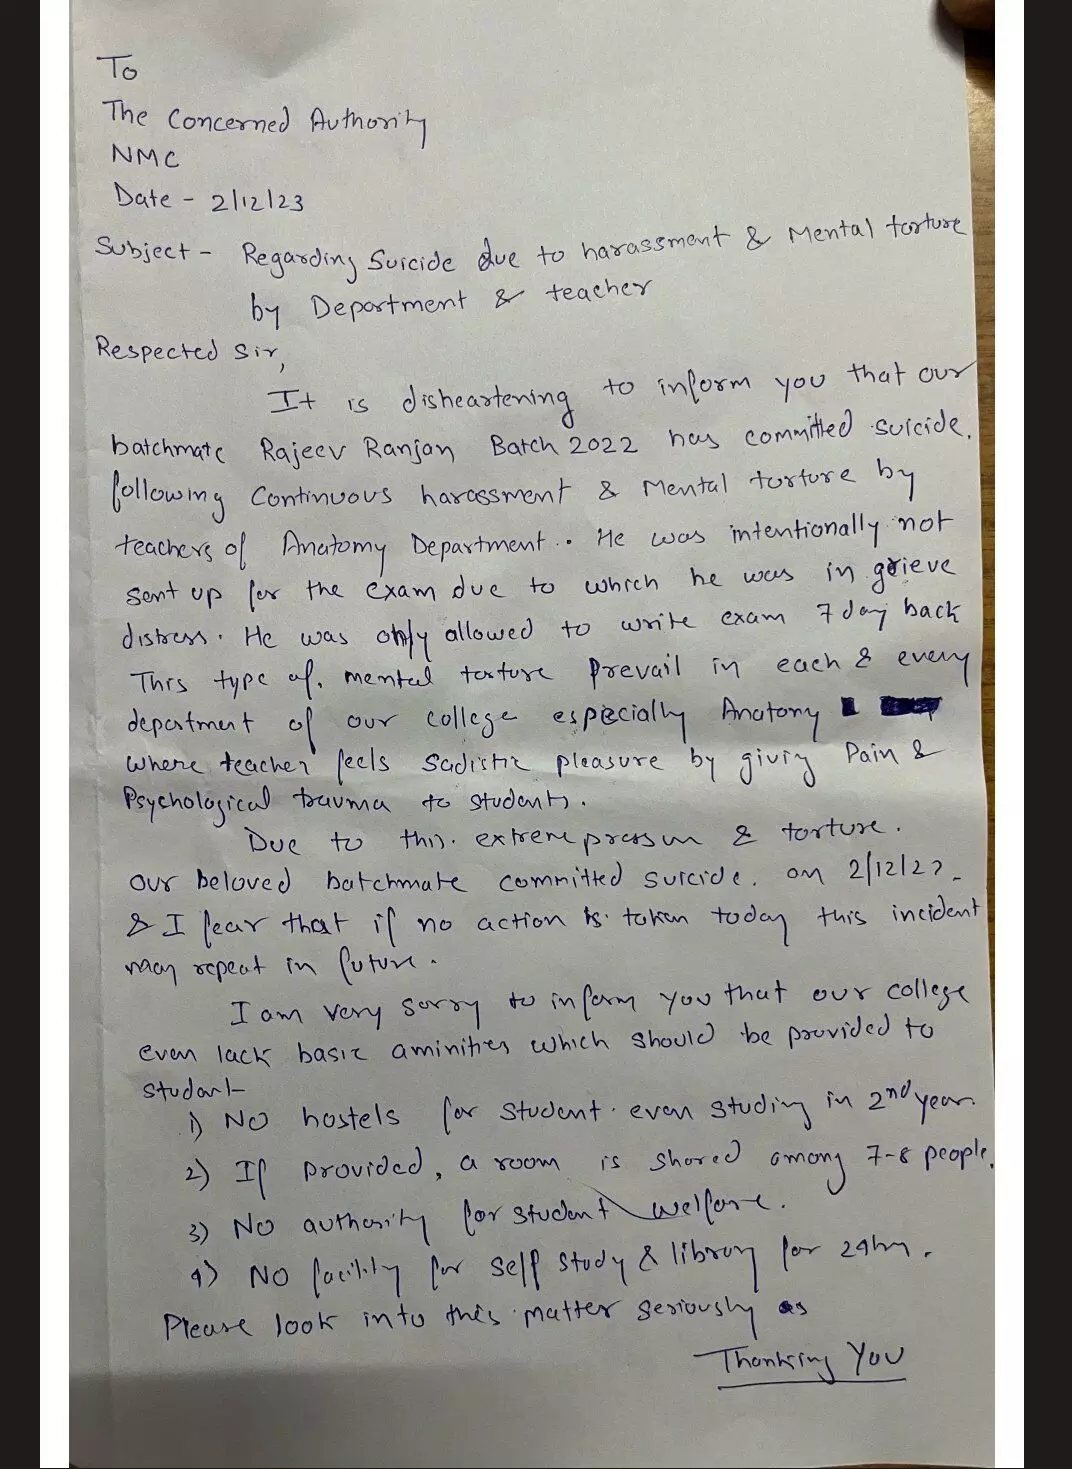 To
The Concerned Authority
NMC
Date - 2/12/23
Subject - Regarding Suicide due to harassment & Mental torture
by Department & teacher
Respected Sir,
It is disheartening to inform you that our
batchmate Rajeev Ranjan Batch 2022 has committed suicide.
following Continuous harassment & Mental torture by
teachers of Anatomy Department.. He was intentionally not
sent up for the exam due to which he was in grieve
distress. He was only allowed to write exam 7 day back
This type of. mental torture Prevail in each & every
department of our college especially Anatomy
where teacher feels Sadistic pleasure by giving Pain &
Psychological trauma to students.
Due to this. extreme pressure & torture.
our beloved batchmate committed suicide. on 2/12/23.
& I fear that if no action is taken today this incident
may repeat in future.
I am very sorry to inform you that our college
even lack basic aminities which should be provided to
student
1) No hostels for student even studing in 2nd year.
2) If provided, a room is shared among 7-8 people.
3) No authority for student welfare.
4) No facility for self study & library for 24hr.
Please look into this matter seriously as
Thanking You